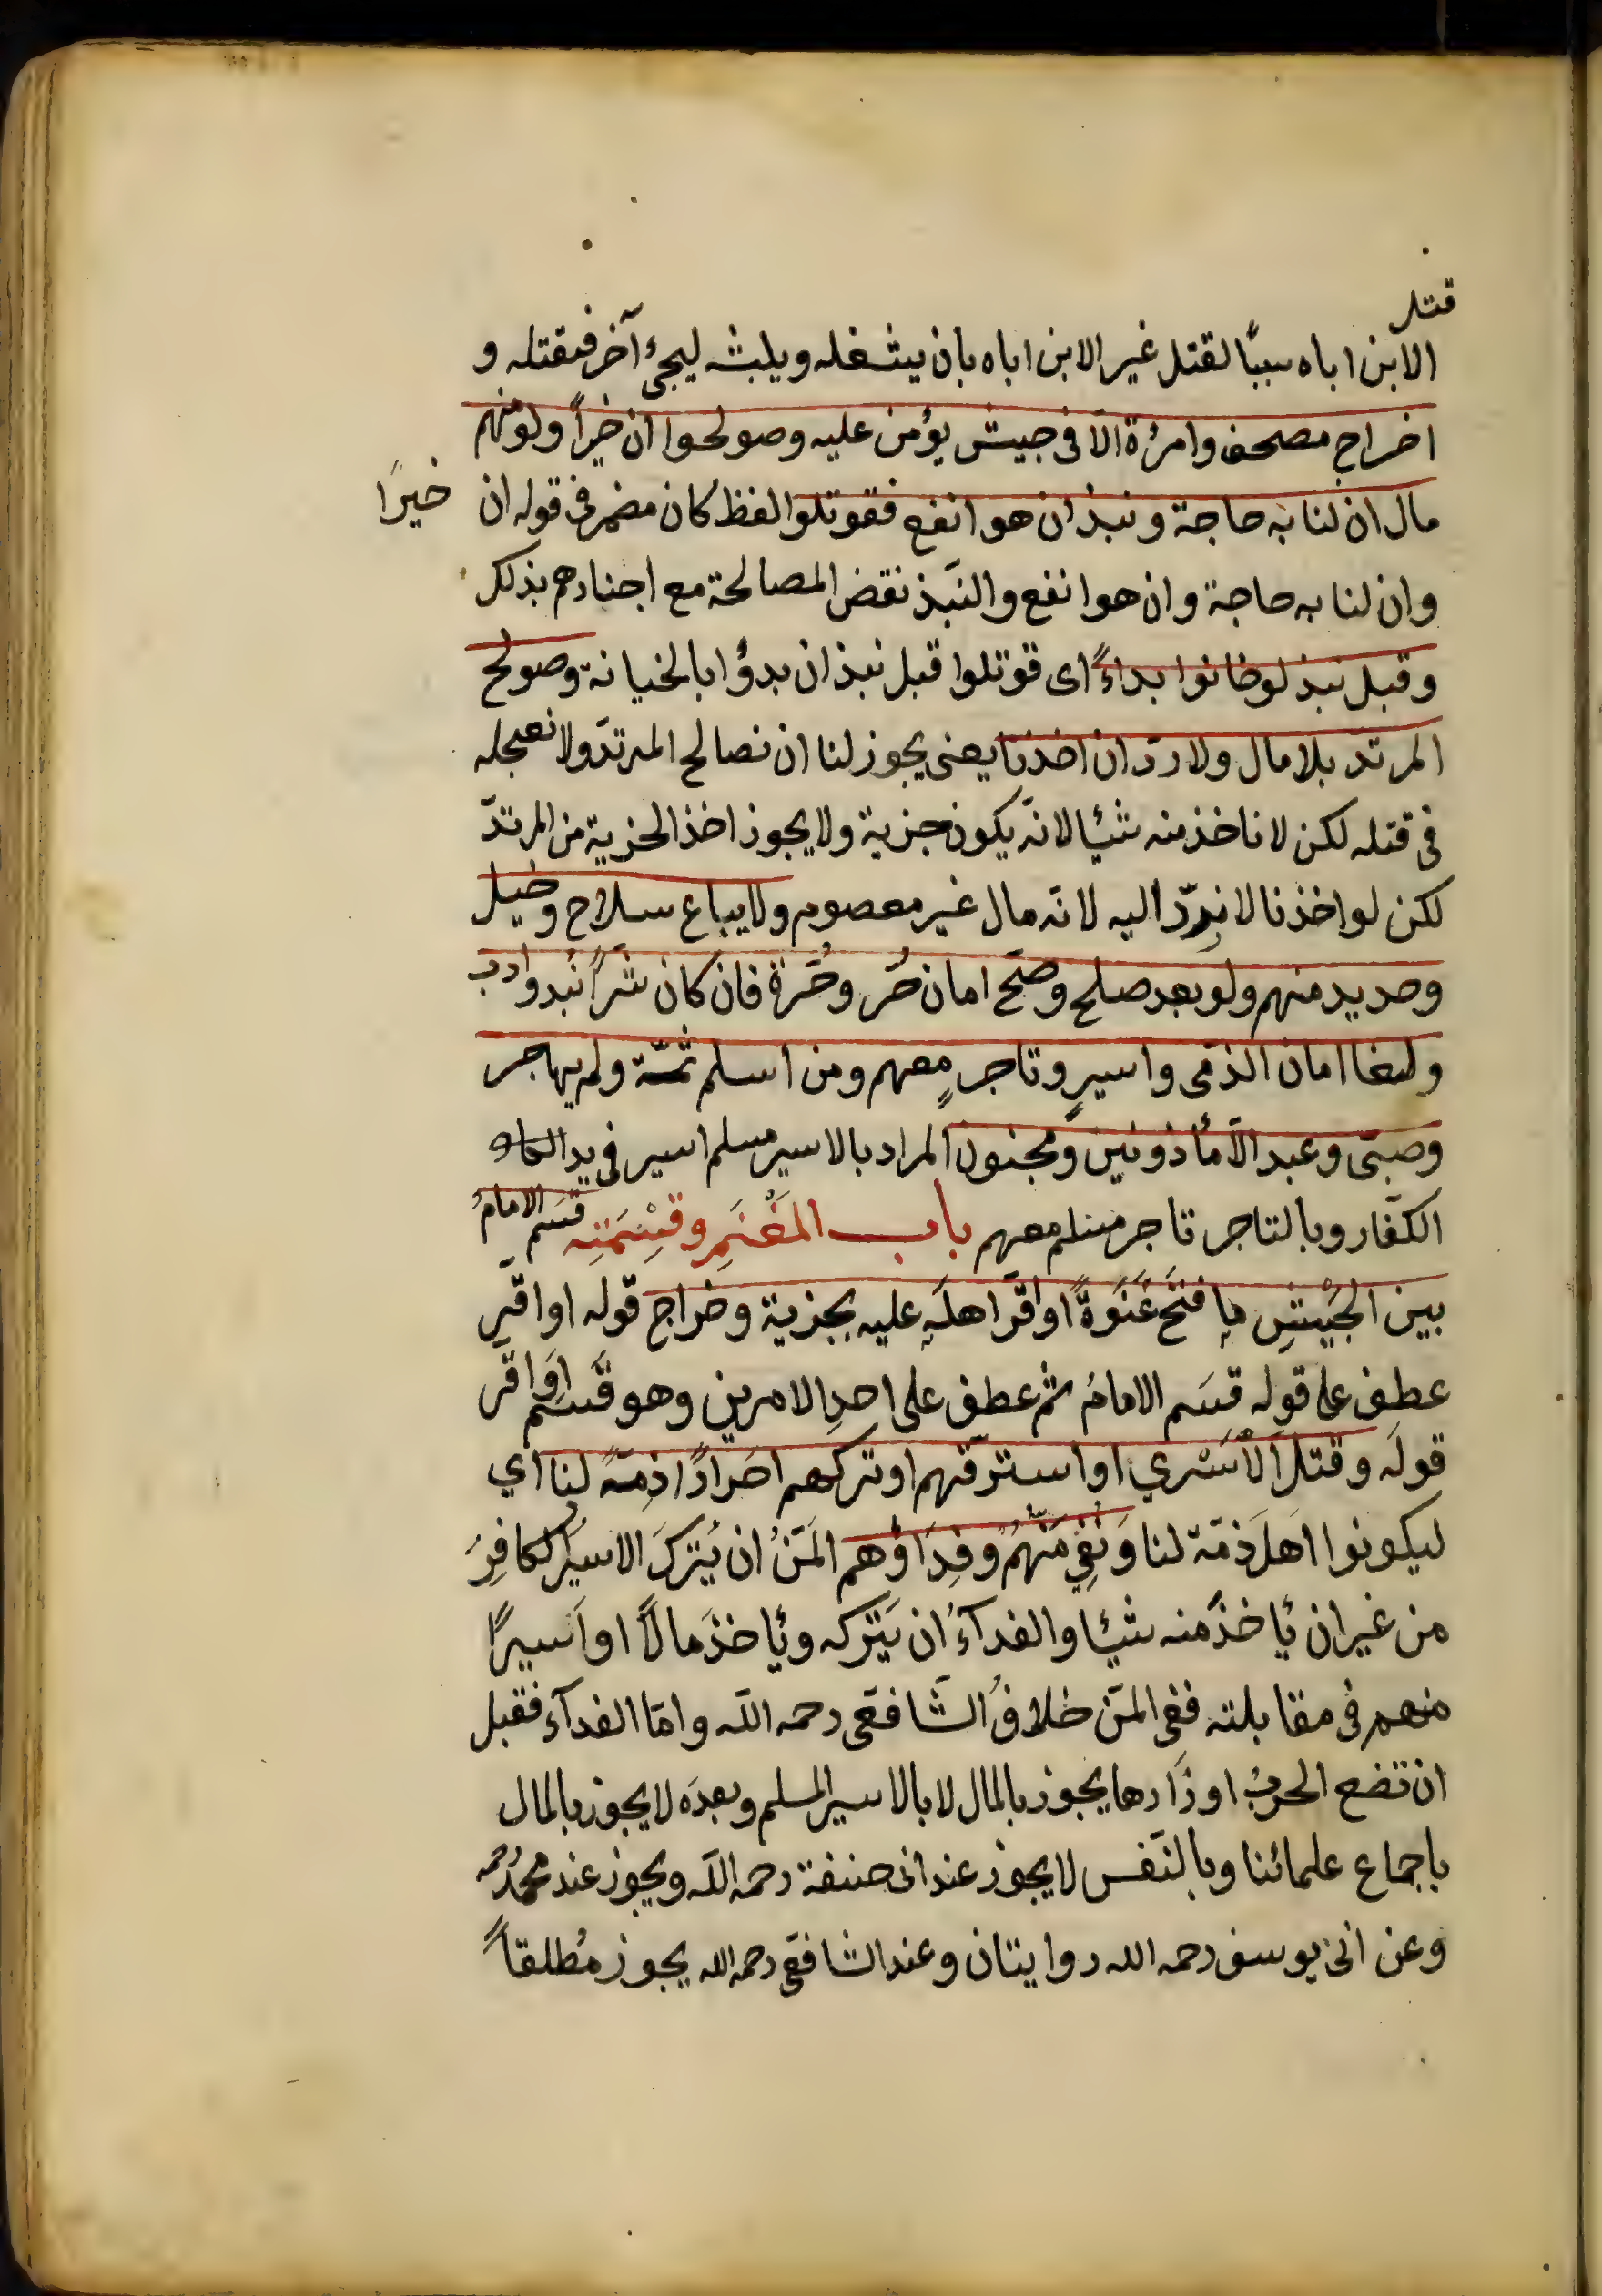 قتل
الابن اباه سببًا لقتل غير الابن اباه بان يشغله ويلبث ليجئ آخر فيقتله و
اخراج مصحف وامرٔة الّا فى جيش يؤمن عليه وصولحوا ان خيرًا ولو منهم
مال ان لنا به حاجة ونبذ ان هو انفع فقوتلوا لفظ كان مضمر فى قوله ان
خيرًا
وان لنا به حاجة وان هو انفع والنّبذ نقض المصالحة مع اخبارهم بذلك
وقبل نبذ لو خانوا بداءً اى قوتلوا قبل نبذ ان بدؤا بالخيانة وصولح
المرتدّ بلا مال ولا ردّ ان اخذنا يعنى يجوز لنا ان نصالح المرتدّ ولا نعجله
فى قتله لكن لا ناخذ منه شيئا لانّه يكون جزية ولا يجوز اخذ الجزية من المرتدّ
لكن لو اخذنا لا نردّ اليه لانّه مال غير معصوم ولا يباع سلاح وخيل
وحديد منهم ولو بعد صلح وصحّ امان حُرّ وحُرّة فان كان شرًّا نُبذ وادب
ولغا امان الذمّى واسيرٍ وتاجرٍ معهم ومن اسلم ثمّة ولم يهاجر
وصبىّ وعبد الّا مأذونين ومجنون المراد بالاسير مسلم اسير فى يد
الكفّار وبالتاجر تاجر مسلم معهم باب المَغْنَمِ وقِسْمَتِه قسَم الامامُ
بين الجَيْشِ ما فُتحَ عَنْوَةً او اقرّ اهلَه عليه بجزية وخراج قوله او اقر
عطف على قوله قسَم الامامُ ثم عطف على احدِ الامرين وهو قسَم اوَ اقر
قولَه وقتلَ الأَسْرى او استرقّهم او تركهم احرارًا ذمّةً لنا اي
ليكونوا اهلَ ذمّة لنا وَنُفِيَ مَنُّهُم وَفِدَاؤُهم المَنُّ ان يُتركَ الاسيرُ الكافِرُ
من غير ان يُأخذَ منه شيئا والفدآءُ ان يَتركه ويُأخذَ مالًا او اَسيرًا
منهم فى مقابلته ففى المنّ خلافُ الشّافعى رحمه اللّه وامّا الفدآء فقبل
ان تضع الحربُ اوزَارها يجوز بالمال لا بالاسير المسلم وبعدَه لا يجوز بالمال
باجماع علمائنا وبالنّفس لا يجوز عند ابى حنيفة رحمه اللّه ويجوز عند محمّد رحمه
وعن ابى يوسف رحمه الله روايتان وعند الشافعى رحمه الله يجوز مُطلقاً